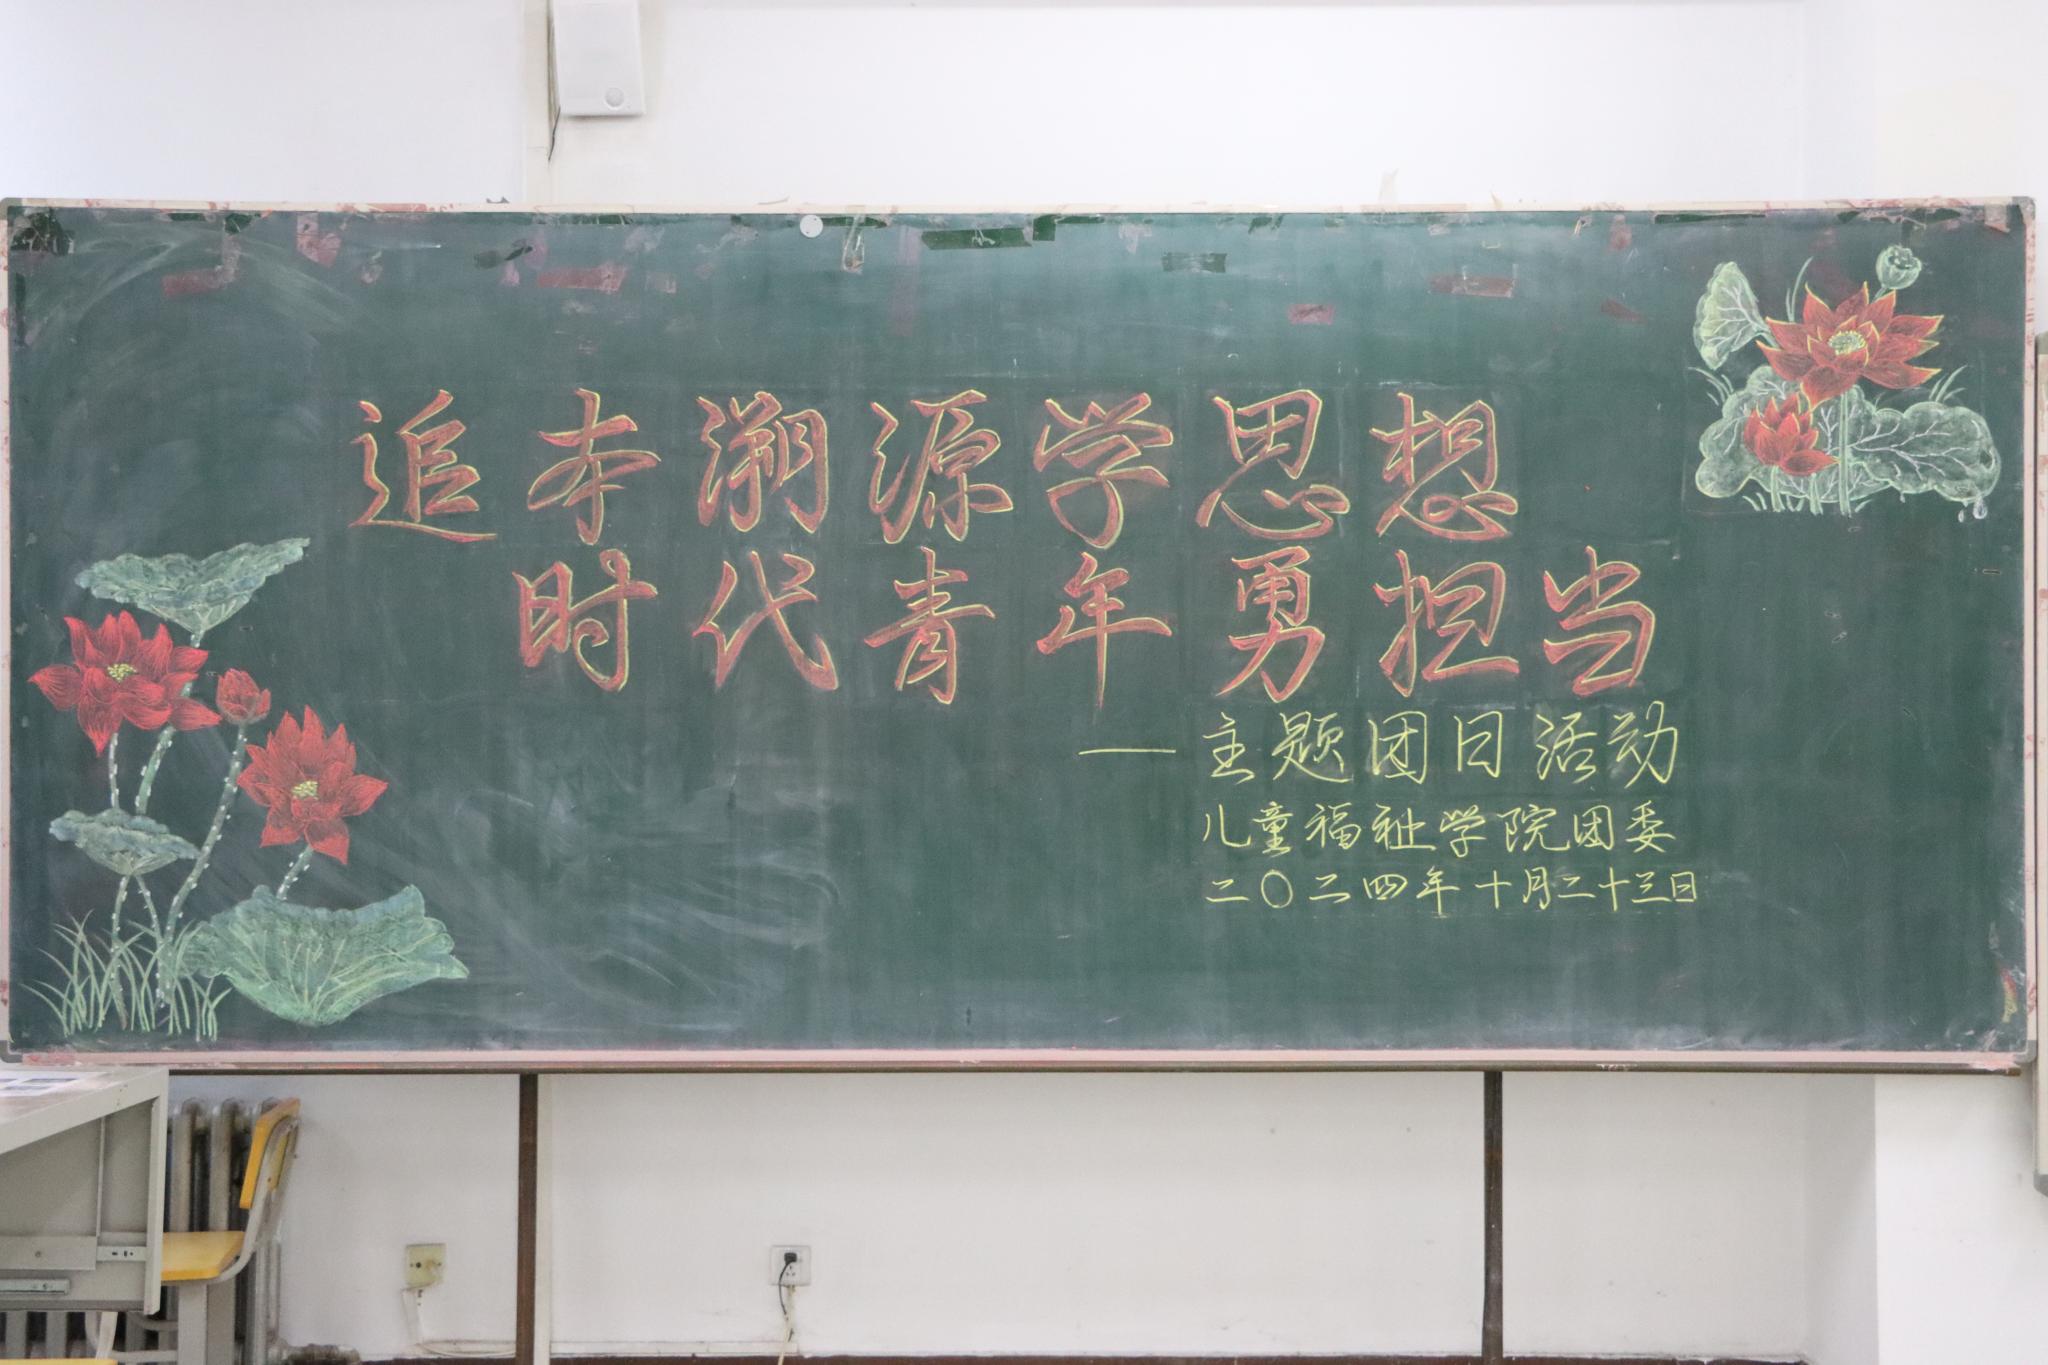 追本溯源学思想
时代青年勇担当
—主题团日活动
儿童福祉学院团委
二〇二四年十月二十三日